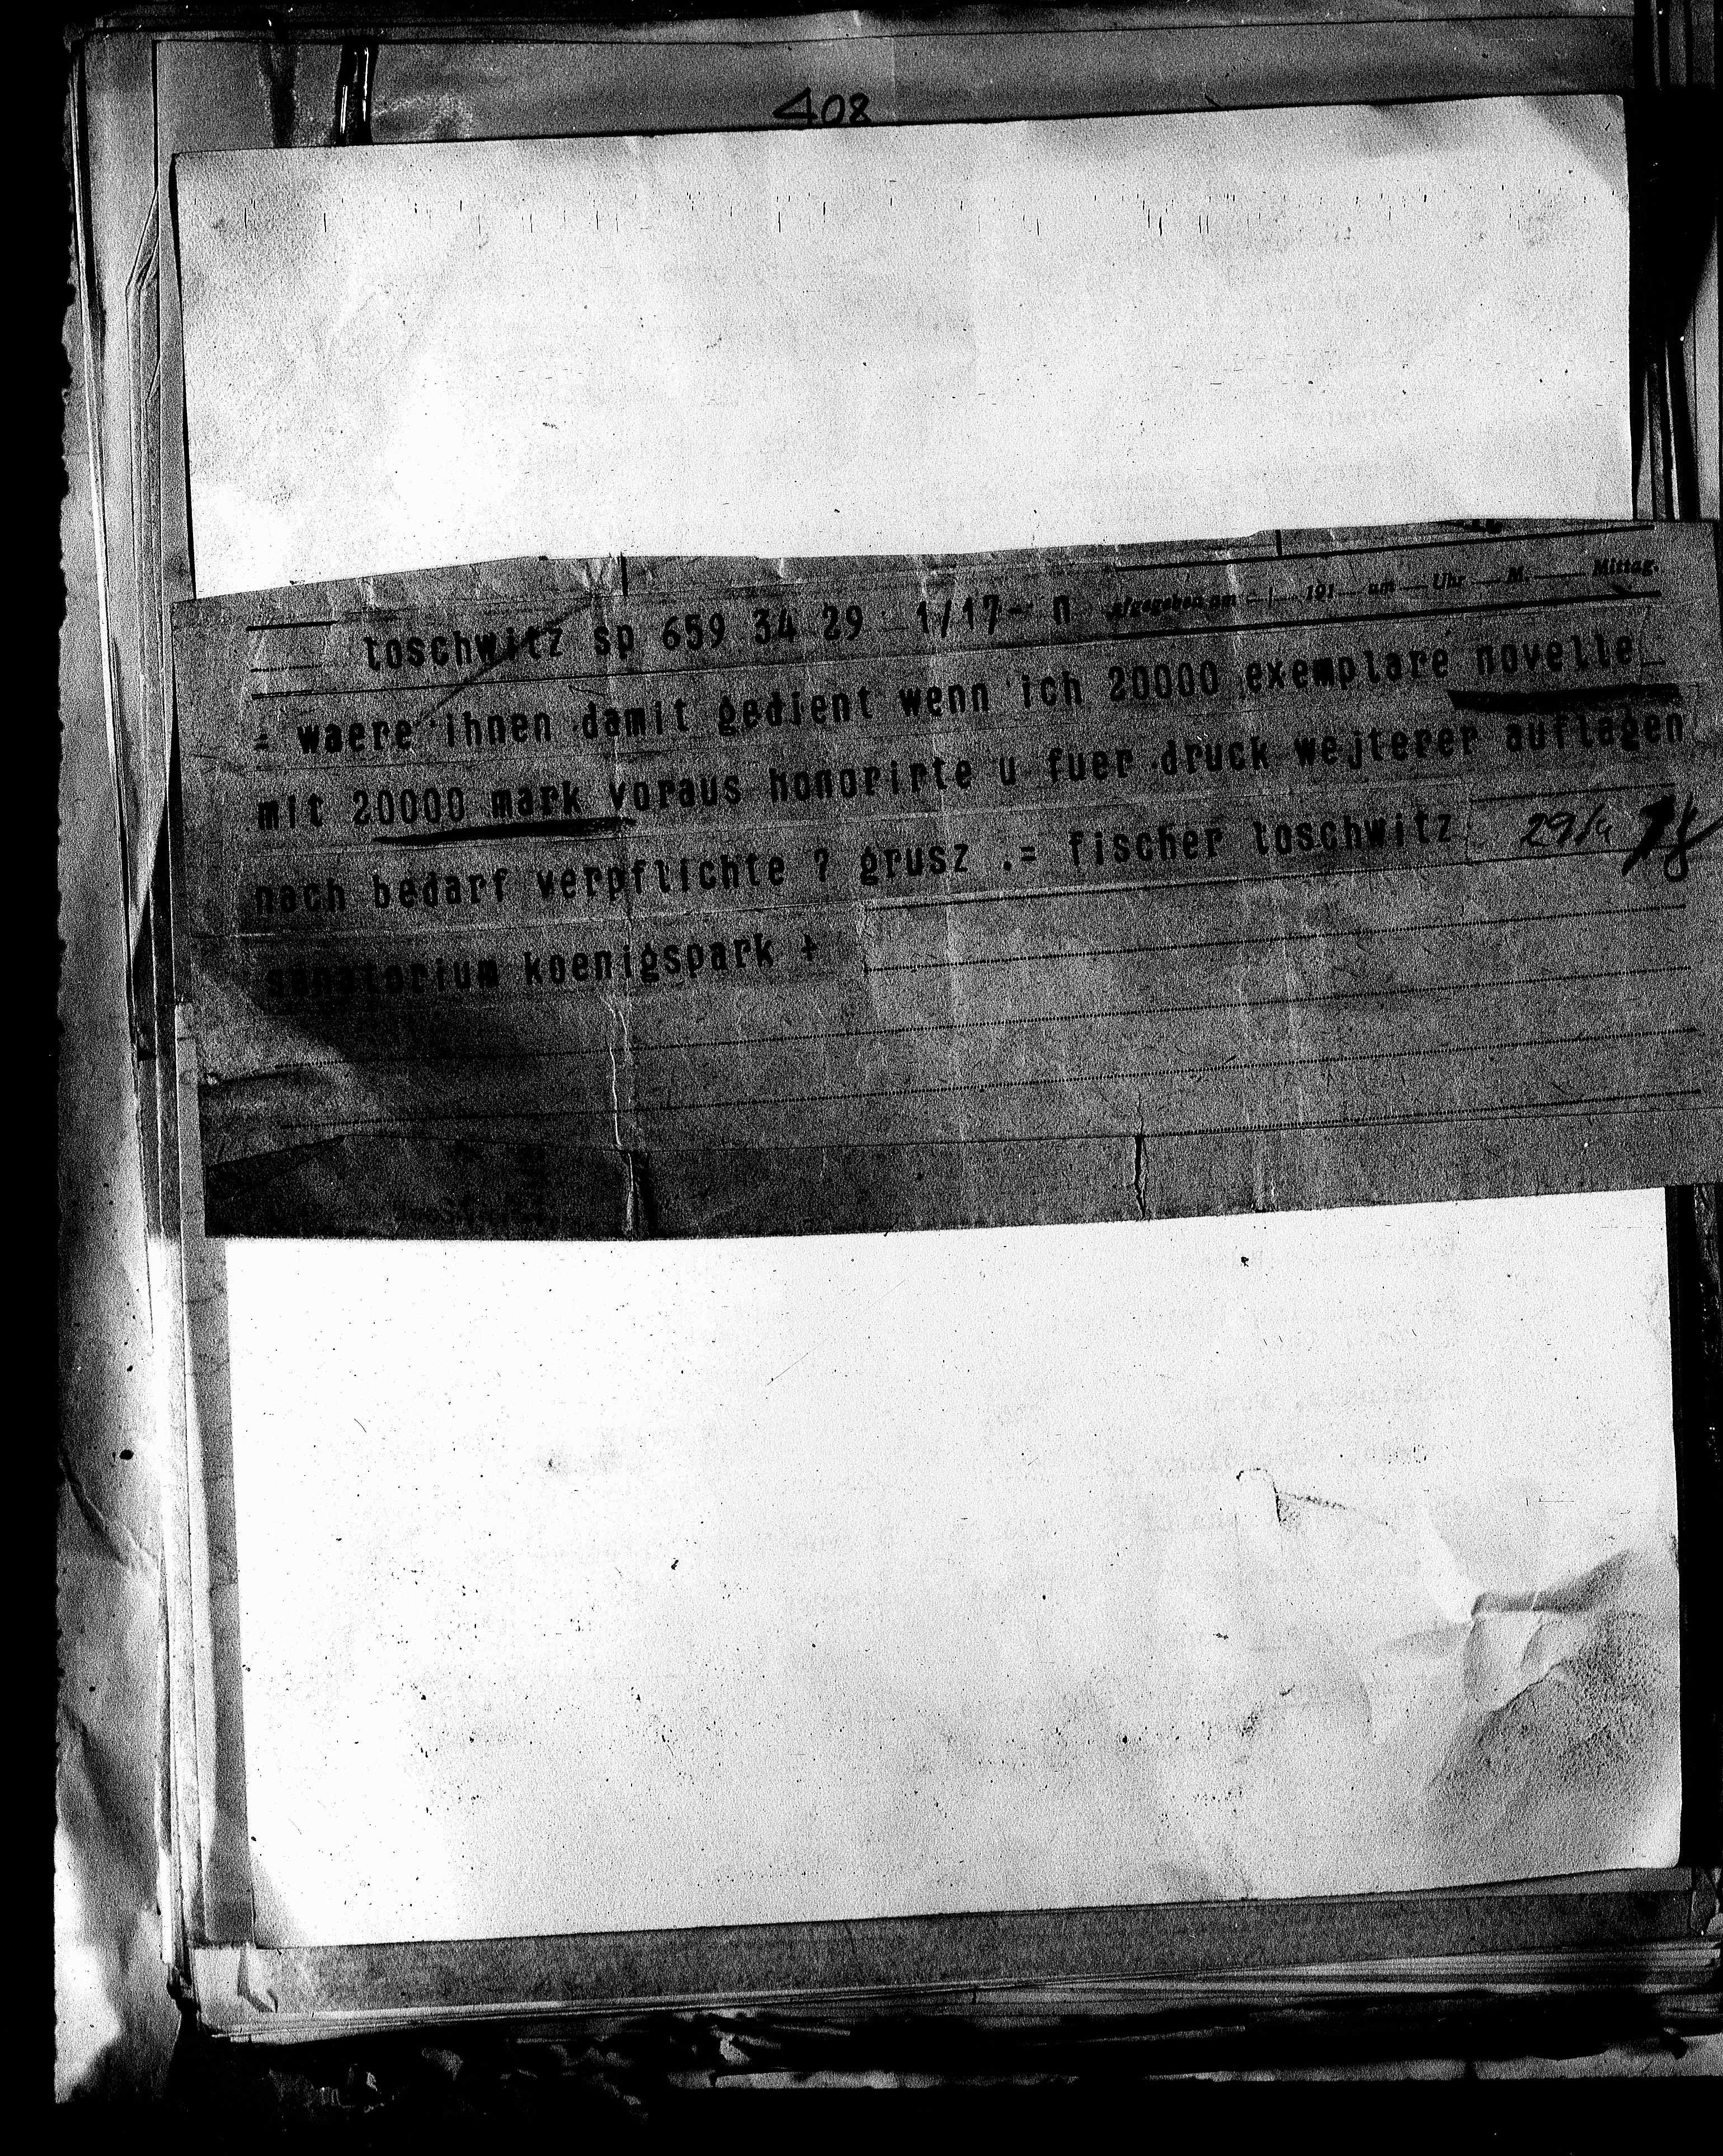 408
loschwitz sp 659 34 29 1/17- n Aufgegeben am - 1 - 191 um Uhr M. Mittag.
= waere ihnen damit gedient wenn ich 20000 exemplare novelle
mit 20000 mark voraus honorirte u fuer druck wejterer auflagen
nach bedarf verpflichte ? grusz .= fischer loschwitz 29/9 18
sanatorium koenigspark +